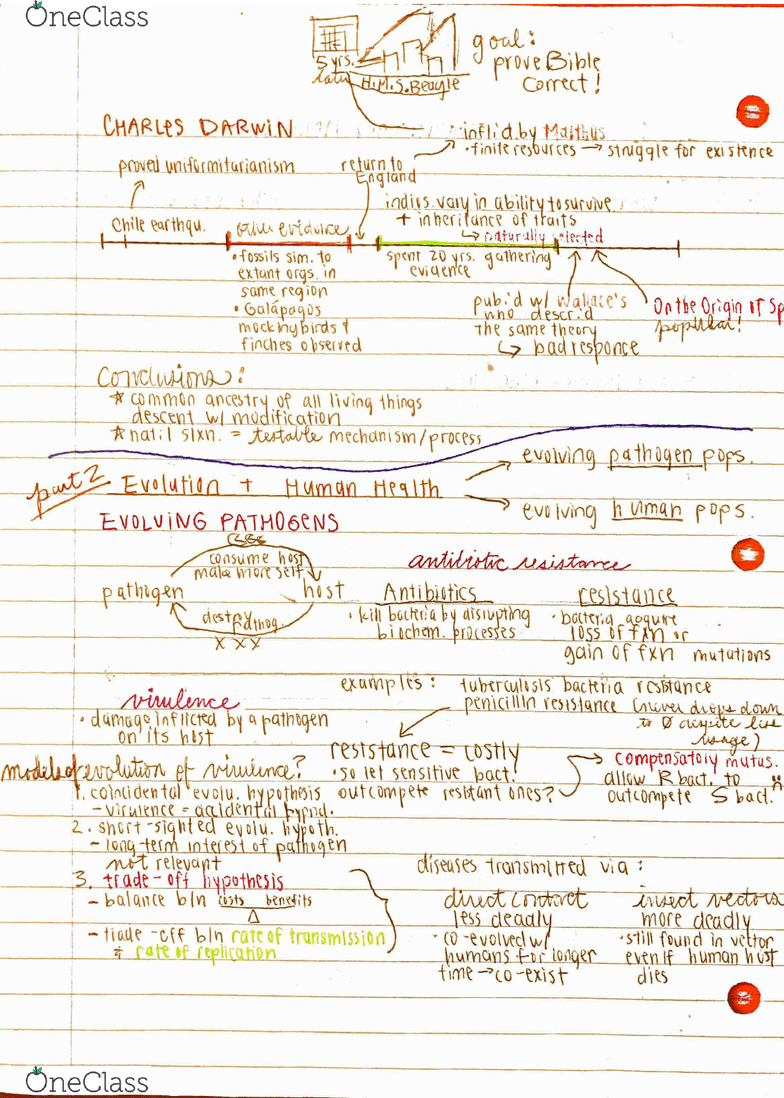 OneClass
goal:
prove Bible
correct!
5 yrs.
later H.M.S. Beagle
CHARLES DARWIN
infl'd by Malthus
• finite resources → struggle for existence
proved uniformitarianism
return to
England
indivs. vary in ability to survive
+ inheritance of traits
↳ naturally selected
Chile earthqu.
evidence
• fossils sim. to
extant orgs. in
same region
• Galápagos
mockingbirds &
finches observed
spent 20 yrs. gathering
evidence
pub.'d w/ Wallace's
who descri'd
the same theory
↳ bad responce
On the Origin of Sp
popular!
Conclusions:
* common ancestry of all living things
descent w/ modification
* nat'l slxn. = testable mechanism/process
part 2
Evolution + Human Health
evolving pathogen pops.
evolving human pops.
EVOLVING PATHOGENS
consume host
make more self
pathogen
host
destroy
pathog.
x x x
antibiotic resistance
Antibiotics
• kill bacteria by disrupting
biochem. processes
resistance
• bacteria acquire
loss of fxn or
gain of fxn mutations
examples: tuberculosis bacteria resistance
penicillin resistance (never drops down
to Ø despite less
usage)
virulence
• damage inflicted by a pathogen
on its host
resistance = costly
• so let sensitive bact.
outcompete resistant ones?
compensatory mutas.
allow R bact. to
outcompete S bact.
models of evolution of virulence?
1. coincidental evolu. hypothesis
- virulence = accidental byprd.
2. short-sighted evolu. hypoth.
- long term interest of pathogen
not relevant
3. trade-off hypothesis
- balance btn costs benefits
- trade-off btn rate of transmission
& rate of replication
diseases transmitted via:
direct contact
less deadly
• co-evolved w/
humans for longer
time → co-exist
insect vectors
more deadly
• still found in vector
even if human host
dies
OneClass